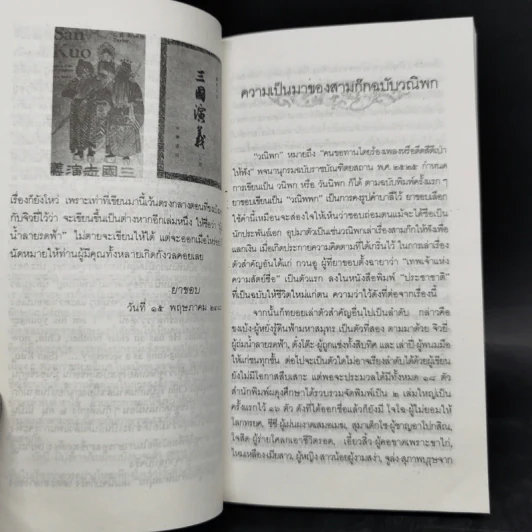 San
Kuo
三國演義
เรื่องก็ยังไหว เพราะเท่าที่เขียนมานี้เว้นตรงกลางตอนที่
กับจิวยี่ไว้ว่า จะเขียนขึ้นเป็นต่างหากอีกเล่มหนึ่ง ให้ชื่อว่า
น้ำลายรดฟ้า" ไม่ตายจะเขียนให้ได้ แต่จะออกเมื่อไหร่
นัดหมายให้ท่านผู้มีคุณทั้งหลายเกิดกังวลคอยเลย
ยาขอบ
วันที่ ๑๕ พฤษภาคม
ความเป็นมาของสามก๊กฉบับวณิพก
"วณิพก" หมายถึง "คนขอทานโดยร้องเพลงหรือดีดสีตีเป่า
ให้ฟัง" พจนานุกรมฉบับราชบัณฑิตยสถาน พ.ศ. ๒๕๒๕ กำหนด
การเขียนเป็น วนิพก หรือ วันนิพก ก็ได้ ตามฉบับพิมพ์ครั้งแรก ๆ
ยาขอบเขียนเป็น "วณิพก" เป็นการคงรูปคำบาลีไว้ ยาขอบเลือก
ใช้คำนี้เหมือนจะส่องใจให้เห็นว่าขอบถ่อมตนแม้จะได้ชื่อเป็น
นักประพันธ์เอก อุปมาตัวเป็นเช่นวณิพกเล่าเรื่องสามก๊กให้ฟังเพื่อ
แลกเงิน เมื่อเกิดประกายความคิดตามที่ได้เกริ่นไว้ ในการเล่าเรื่อง
ตัวสำคัญอันได้แก่ กวนอู ผู้ที่ยาขอบตั้งฉายาว่า "เทพเจ้าแห่ง
ความสัตย์ซื่อ" เป็นตัวแรก ลงในหนังสือพิมพ์ "ประชาชาติ"
ที่เป็นฉบับให้ชีวิตใหม่แก่ตน ความว่าไว้ดังที่ต่อจากเรื่องนี้
จากนั้นก็ทยอยเล่าตัวสำคัญอื่นไปเป็นลำดับ กล่าวคือ
ขงเบ้ง-ผู้หยั่งรู้ดินฟ้ามหาสมุทร เป็นตัวที่สอง ตามมาด้วย จิวยี่-
ผู้ถ่มน้ำลายรดฟ้า, ตั๋งโต๊ะ-ผู้ถูกแช่งทั้งสิบทิศ และ เล่าปี่-ผู้พนมมือ
ให้แก่ชนทุกชั้น ต่อไปจะเป็นตัวใดไม่อาจเรียงลำดับได้ด้วยผู้เขียน
ยังไม่มีโอกาสสืบเสาะ แต่พอจะประมวลได้มีทั้งหมด ๑๘ ตัว
สำนักพิมพ์ผดุงศึกษาได้รวบรวมจัดพิมพ์เป็น ๒ เล่มใหญ่เป็น
ครั้งแรกไว้ ๑๖ ตัว ดังที่ได้ออกชื่อแล้วก็ยังมี โจโฉ-ผู้ไม่ยอมให้
โลกทรยศ, ซีซี-ผู้เผ่นผงาดเสมอเมฆ, สุมาเต๊กโช-ผู้ชาญอาโปกสิณ,
โจสิด-ผู้ร่ายโศลกเอาชีวิตรอด, เอี้ยวสิ้ว-ผู้คอขาดเพราะขาไก่,